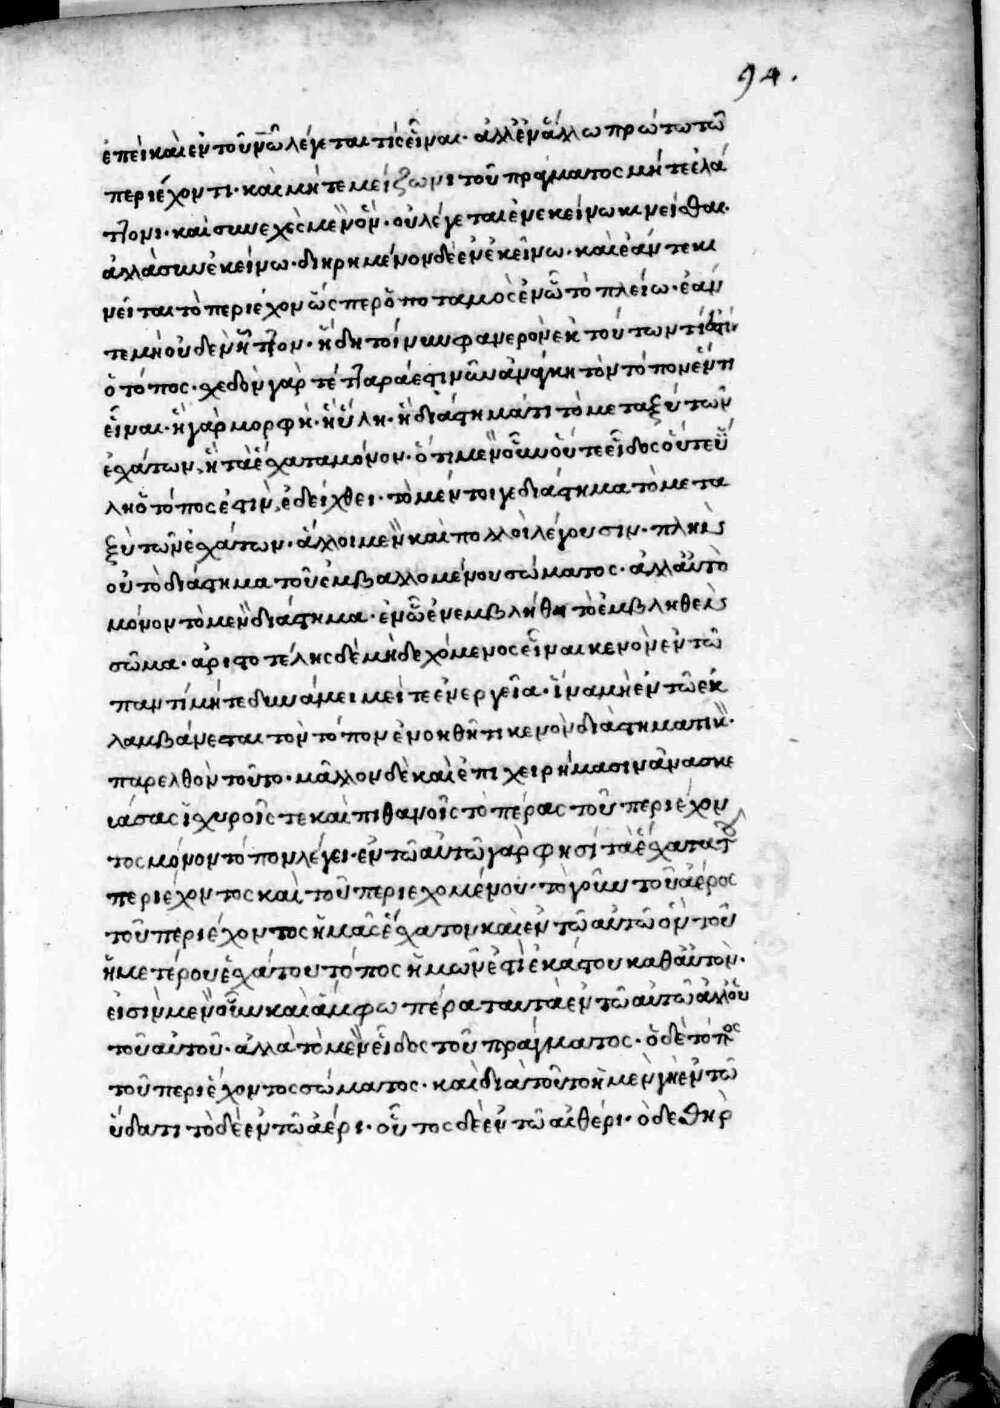 94.
ἐπεὶ καὶ ἐν τοῦ νῶ λέγεται τίς εἶναι· ἀλλ' ἐν ἄλλω πρώτω τῶ
περιέχοντι· καὶ μήτε μείζωνι τοῦ πράγματος μήτε ἐλά
ττονι· καὶ συνεχὲς μὲν ὂν· οὐ λέγεται ἐν ἐκείνω κινεῖσθαι·
ἀλλὰ σὺν ἐκείνω· διηρημένον δὲ ἐν ἐκείνω· καὶ ἐάν τε κι
νεῖται τὸ περιέχον ὥσπερ ὁ ποταμὸς ἐν ὧ τὸ πλείω· ἐάν
τε μὴ οὐδὲν ἧττον· ἤδη τοίνυν φανερὸν ἐκ τούτων τί ἐστιν
ὁ τόπος· σχεδὸν γὰρ τέτταρά ἐστιν ὧν ἀνάγκη τὸν τόπον ἕν τι
εἶναι· ἢ γὰρ μορφὴ· ἢ ὕλη· ἢ διάστημά τι τὸ μεταξὺ τῶν
ἐσχάτων, ἢ τὰ ἔσχατα μόνον· ὅτι μὲν οὖν οὔτε εἶδος οὔτε ὕ
λη ὁ τόπος ἐστὶν, ἐδείχθει· τὸ μέντοι γε διάστημα τὸ μετα
ξὺ τῶν ἐσχάτων· ἄλλοι μὲν καὶ πολλοὶ λέγουσιν· πλὴν
οὐ τὸ διάστημα τοῦ ἐμβαλλομένου σώματος· ἀλλ' αὐτὸ
μόνον τὸ μὲν διάστημα· ἐν ὧ ἐνεμβλήθη τὸ ἐμβληθὲν
σῶμα· ἀριστοτέλης δὲ μὴ δεχόμενος εἶναι κενὸν ἐν τῶ
παντί μήτε δυνάμει μείτε ἐνεργεῖα· ἵνα μὴ ἐν τῶ ἐκ
λαμβάνεσται τὸν τόπον ἐνοηθῆ τι κενὸν διάστημά τι ἢ·
παρελθὸν τοῦτο· μᾶλλον δὲ καὶ ἐπιχειρήμασιν ἀνασκε
υάσας ἰσχυροῖς τε καὶ πιθανοῖς τὸ πέρας τοῦ περιέχον
τος μόνον τόπον λέγει· ἐν τῶ αὐτῶ γὰρ φησί τὰ ἔσχατα τοῦ
περιέχοντος καὶ τοῦ περιεχομένου· τὸ γοῦν τοῦ ἀέρος
τοῦ περιέχοντος ἡμᾶς ἔσχατον καὶ ἐν τῶ αὐτῶ ὂν τοῦ
ἡμετέρου ἐσχάτου τόπος ἡμῶν ἐστὶ ἑκάστου καθ' αὑτὸν·
εἰσὶν μὲν οὖν καὶ ἄμφω πέρατα ταῦτα ἐν τῶ αὐτῶ ἀλλ' οὐ
τοῦ αὐτοῦ· ἀλλὰ τὸ μὲν εἶδος τοῦ πράγματος· ὁ δὲ τόπος
τοῦ περιέχοντος σώματος· καὶ διὰ τοῦτο ἡ μὲν γῆ ἐν τῶ
ὕδατι τὸ δὲ ἐν τῶ ἀέρι· οὗτος δὲ ἐν τῶ αἰθέρι· ὁ δὲ θὴρ